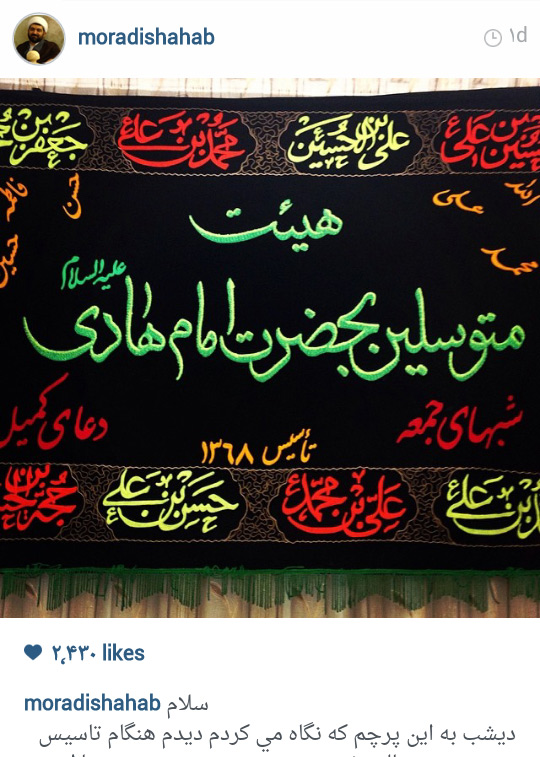 moradishahab
۱d
جعفر بن
محمد بن علی
علی بن الحسین
حسین بن علی
فاطمه
حسن
علی
الله
حسین
محمد
هیئت
علیه السلام
متوسلین بحضرت امام هادی
شبهای جمعه
دعای کمیل
تأسیس ۱۳۶۸
حسن بن علی
علی بن محمد
بن علی
۲,۴۳۰ likes
moradishahab سلام
دیشب به این پرچم که نگاه مي کردم دیدم هنگام تاسیس